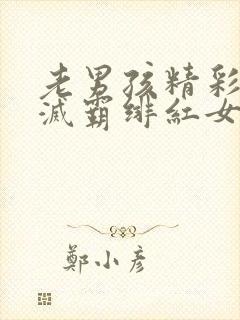 老男孩精彩
滅霸緋紅女
鄭小彥